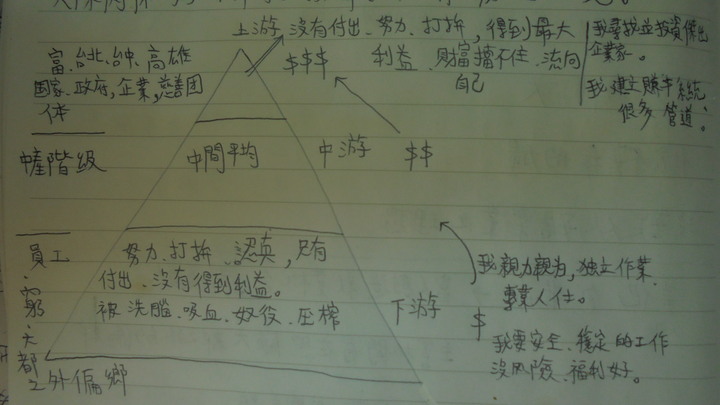 上游 沒有付出、努力、打拚，得到最大
利益、財富擋不住、流向
自己
$$$
我尋找並投資傑出
企業家。
我建立賺牛系統
很多管道。
富、台北、台中、高雄
國家、政府，企業，慈善團
体
中產階級
中間平均
中游 $$
員工
、窮、天都之外偏鄉
努力、打拚、認真，只有
付出、沒有得到利益。
被洗腦、吸血、奴役、压榨
下游 $
我親力親为，独立作業、
專業人仕。
我要安全、穩定的工作
沒風險、福利好。